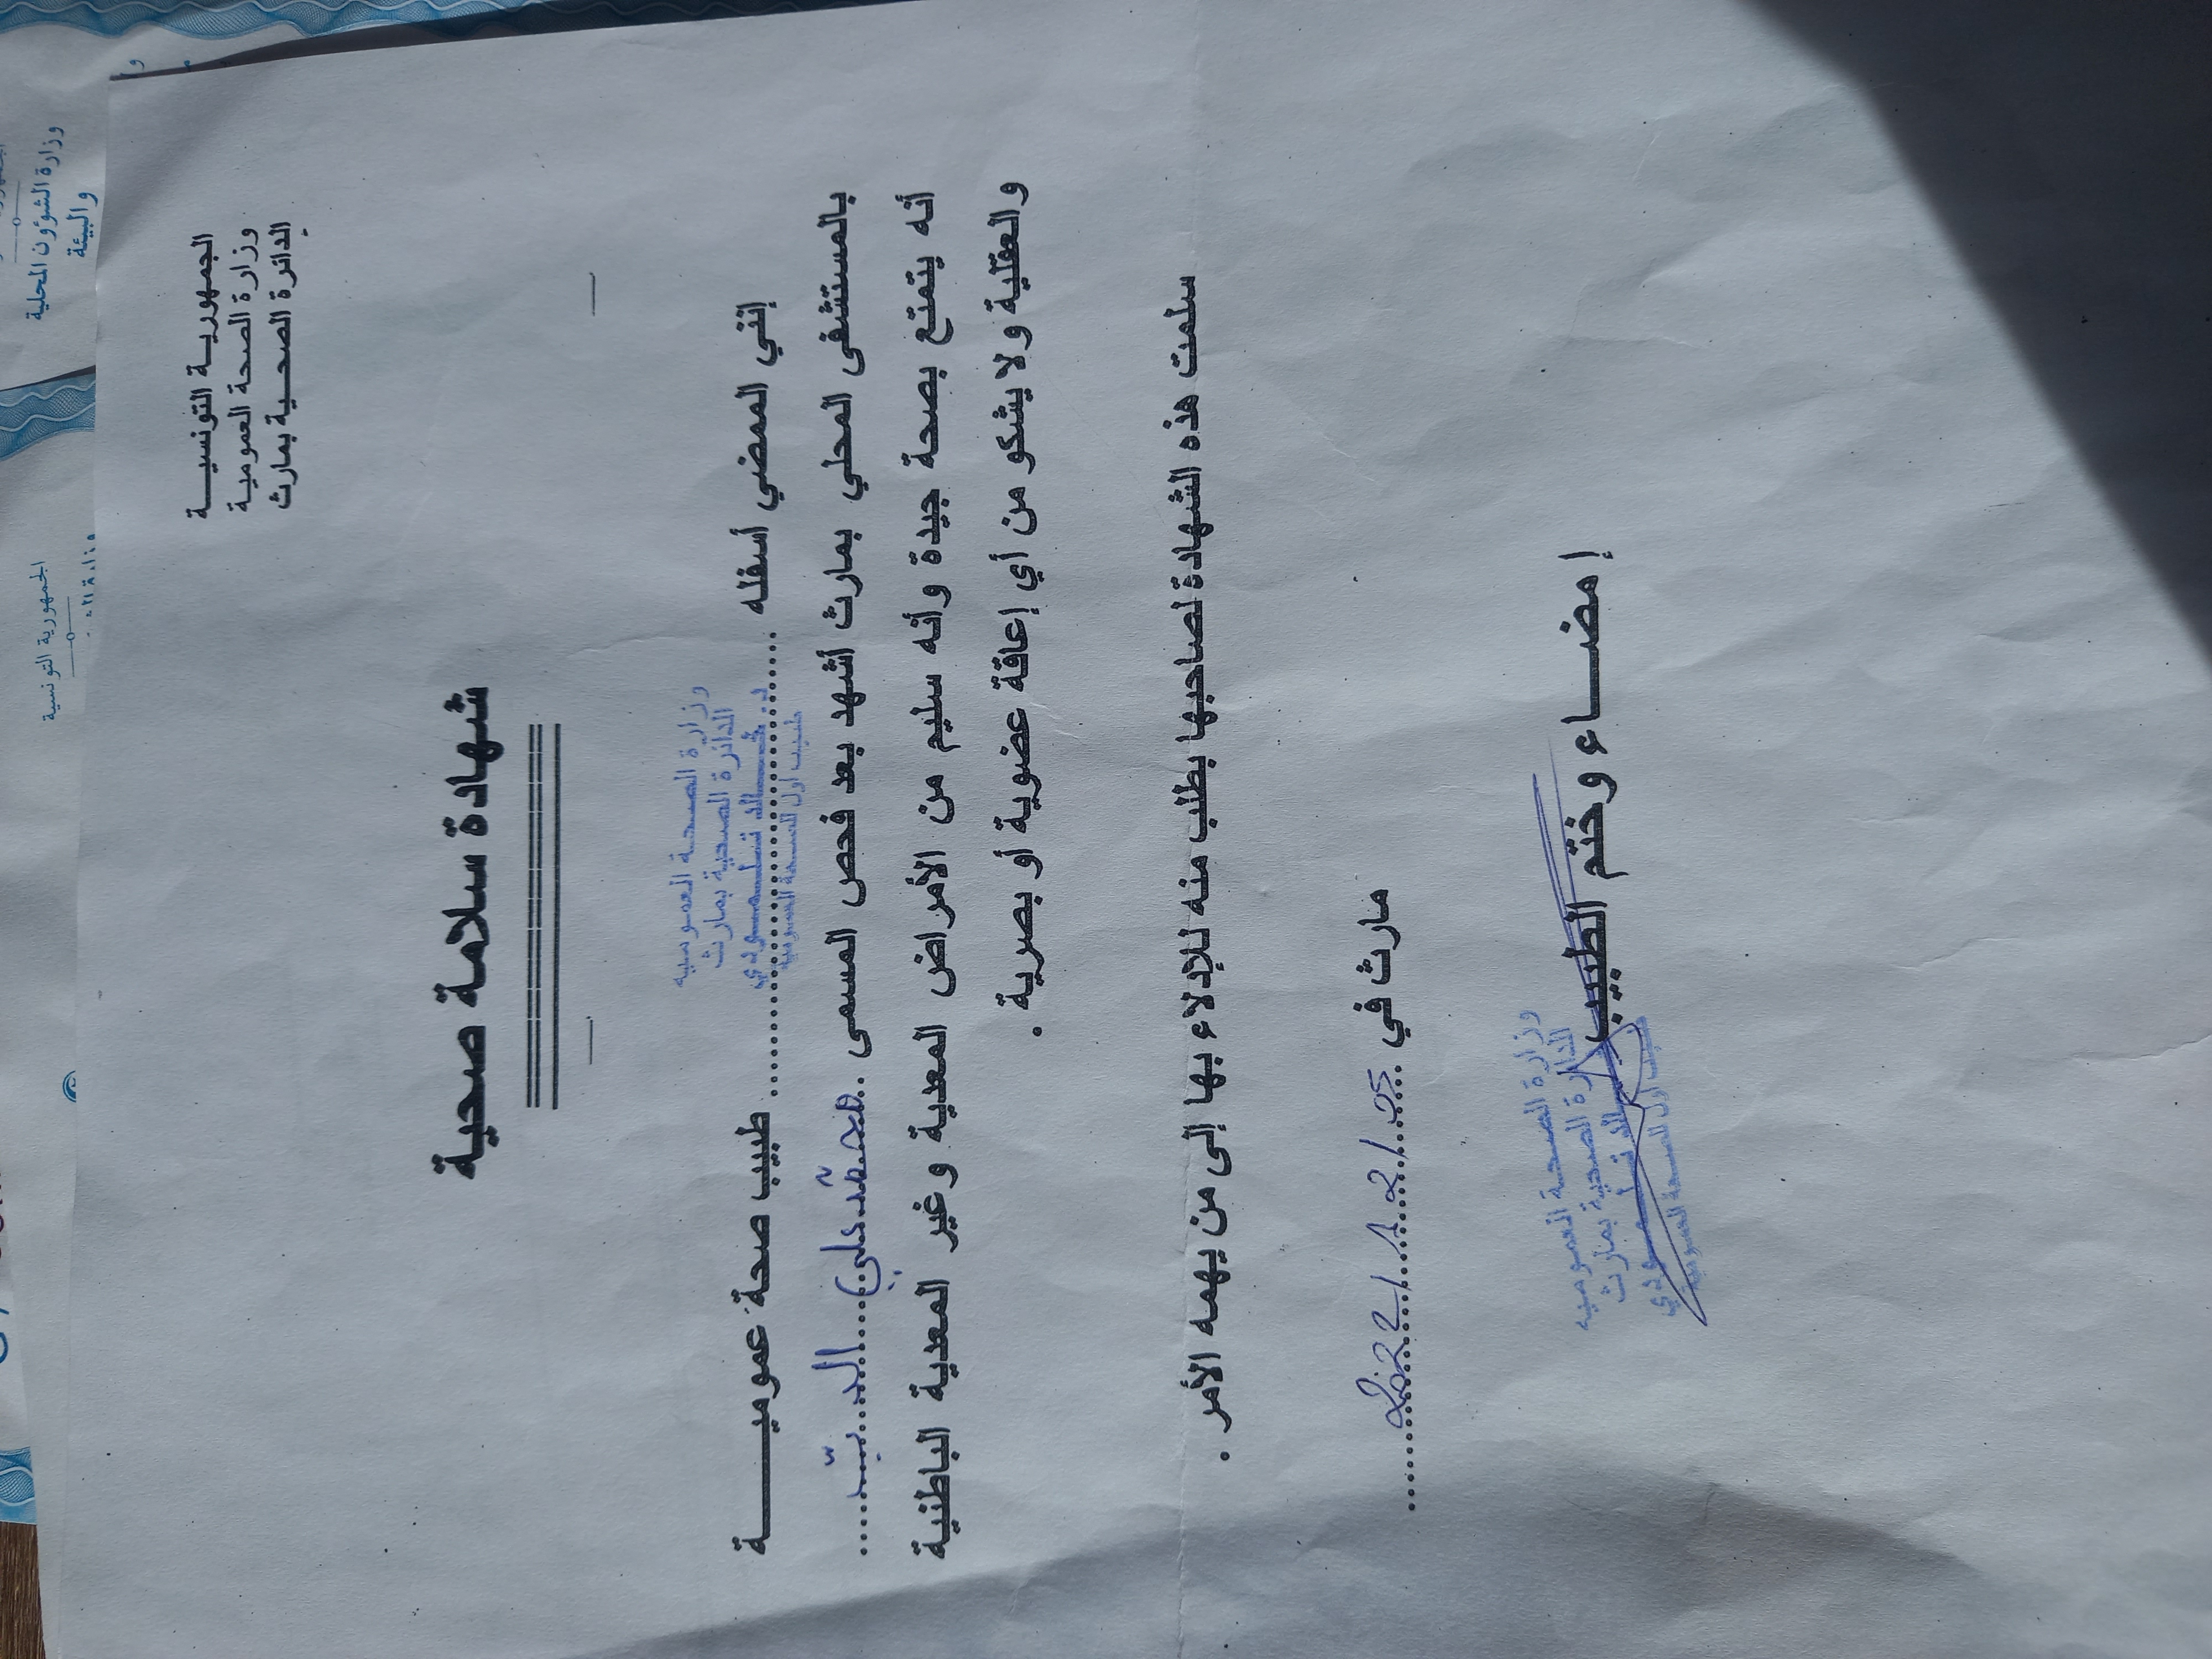 الجمهورية التونسية
وزارة الصحة العمومية
الدائرة الصحية بمارث
شهادة سلامة صحية
وزارة الصحة العمومية
الدائرة الصحية بمارث
طبيب أول للصحة العمومية
إنني الممضي أسفله .................... طبيب صحة عمومية
بالمستشفى المحلي بمارث أشهد بعد فحص المسمى محمد علي
أنه يتمتع بصحة جيدة وأنه سليم من الأمراض المعدية وغير المعدية الباطنية
والعقلية ولا يشكو من أي إعاقة عضوية أو بصرية .
سلمت هذه الشهادة لصاحبها بطلب منه للإدلاء بها إلى من يهمه الأمر .
مارث في
إمضاء وختم الطبيب
وزارة الصحة العمومية
الدائرة الصحية بمارث
طبيب أول للصحة العمومية
الجمهورية التونسية
وزارة الشؤون المحلية
والبيئة